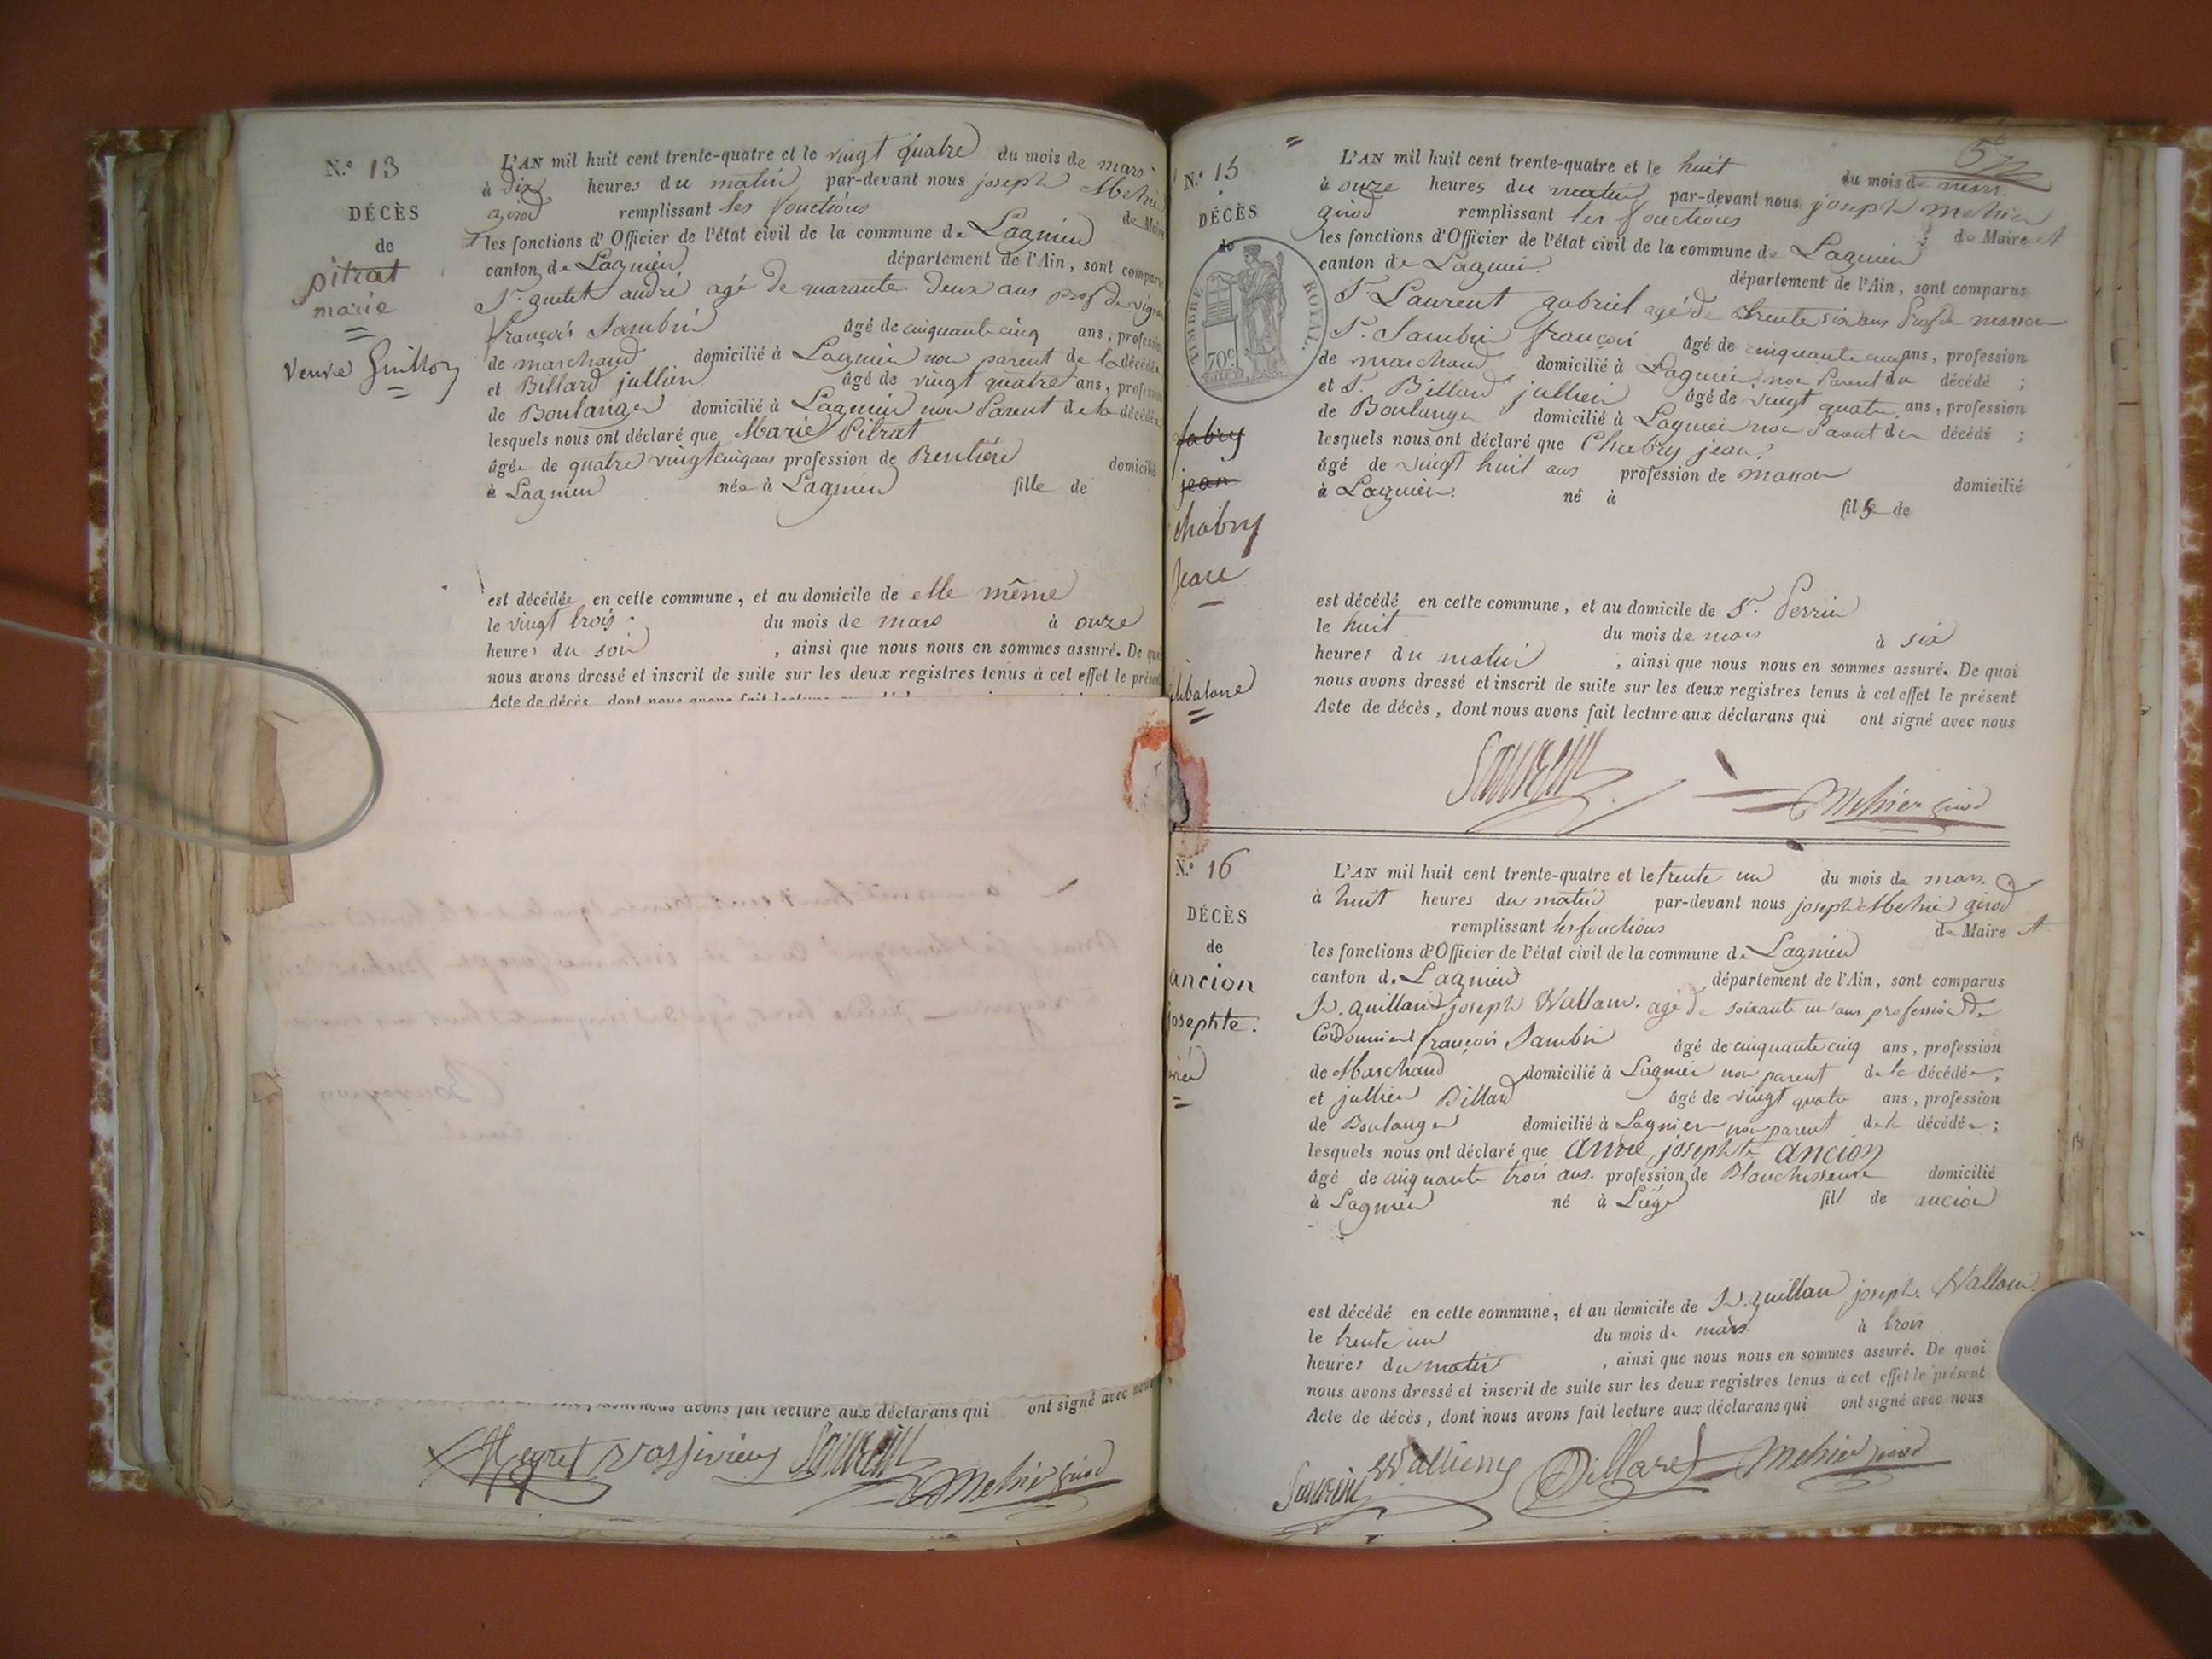 N.º 13
DÉCÈS
de
pitrat
marie
Veuve Guillon
L'AN mil huit cent trente-quatre et le vingt quatre du mois de mars
à dix heures du matin par-devant nous joseph Mehier
girod remplissant les fonctions de Maire
les fonctions d'Officier de l'état civil de la commune de Lagnieu
canton de Lagnieu département de l'Ain, sont comparus
Sr. andré agé de quarante deux ans prof de
françois Sambin âgé de cinquante cinq ans, profession
de marchand domicilié à Lagnieu non parent de la décédée
et Billard jullien âgé de vingt quatre ans, profession
de Boulanger domicilié à Lagnieu non Parent de la décédée
lesquels nous ont déclaré que Marie Pitrat
âgée de quatre vingt cinq ans profession de Rentière domicilié
à Lagnieu née à Lagnieu fille de
est décédée en cette commune, et au domicile de elle même
le vingt trois du mois de mars à onze
heures du soir, ainsi que nous nous en sommes assuré. De quoi
nous avons dressé et inscrit de suite sur les deux registres tenus à cet effet le présent
Acte de décès, dont nous avons fait lecture
nous avons fait lecture aux déclarans qui ont signé avec nous
Mehier girod
N.º 15
DÉCÈS
de
TIMBRE ROYAL.
70c
fabry
jean
chabry
Jean
L'AN mil huit cent trente-quatre et le huit du mois de mars.
à onze heures du matin par-devant nous joseph mehier
girod remplissant les fonctions de Maire et
les fonctions d'Officier de l'état civil de la commune de Lagnieu
canton de Lagnieu département de l'Ain, sont comparus
Sr. Laurent gabriel agé de trente six ans Prof de masson
Sr. Sambin françois âgé de cinquante cinq ans, profession
de marchand domicilié à Lagnieu non Parent du décédé ;
et Sr. Billard jullien âgé de vingt quatre ans, profession
de Boulanger domicilié à Lagnieu non Parent du décédé ;
lesquels nous ont déclaré que Chabry jean
âgé de vingt huit ans profession de masson domicilié
à Lagnieu né à fils de
est décédé en cette commune, et au domicile de Sr. Perrin
le huit du mois de mars à six
heures du matin, ainsi que nous nous en sommes assuré. De quoi
nous avons dressé et inscrit de suite sur les deux registres tenus à cet effet le présent
Acte de décès, dont nous avons fait lecture aux déclarans qui ont signé avec nous
Mehier girod
N.º 16
DÉCÈS
de
ancion
josephte.
L'AN mil huit cent trente-quatre et le trente un du mois de mars.
à huit heures du matin par-devant nous joseph Mehier girod
remplissant les fonctions de Maire et
les fonctions d'Officier de l'état civil de la commune de Lagnieu
canton de Lagnieu département de l'Ain, sont comparus
Sr. joseph agé de soixante un ans profession de
Cordonnier françois Sambin âgé de cinquante cinq ans, profession
de Marchand domicilié à Lagnieu non parent de la décédée ;
et jullien Billard âgé de vingt quatre ans, profession
de Boulanger domicilié à Lagnieu non parent de la décédée ;
lesquels nous ont déclaré que anne josephte ancion
âgé de cinquante trois ans. profession de Blanchisseuse domicilié
à Lagnieu né à Liége fill de ancion
est décédé en cette commune, et au domicile de Sr. joseph.
le trente un du mois de mars à trois
heures du matin, ainsi que nous nous en sommes assuré. De quoi
nous avons dressé et inscrit de suite sur les deux registres tenus à cet effet le présent
Acte de décès, dont nous avons fait lecture aux déclarans qui ont signé avec nous
Billard Mehier girod